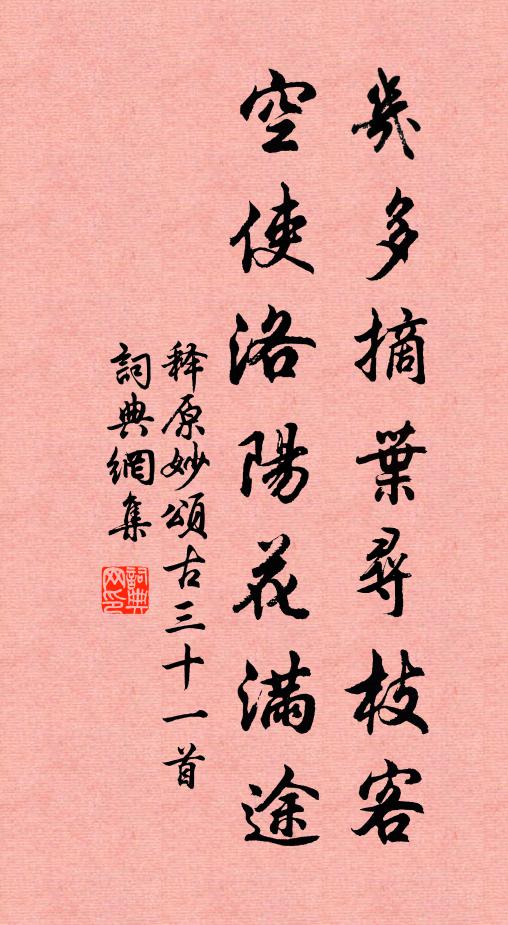 幾多摘葉尋枝客
空使洛陽花滿途
释原妙頌古三十一首
詞典網集
詞典网印